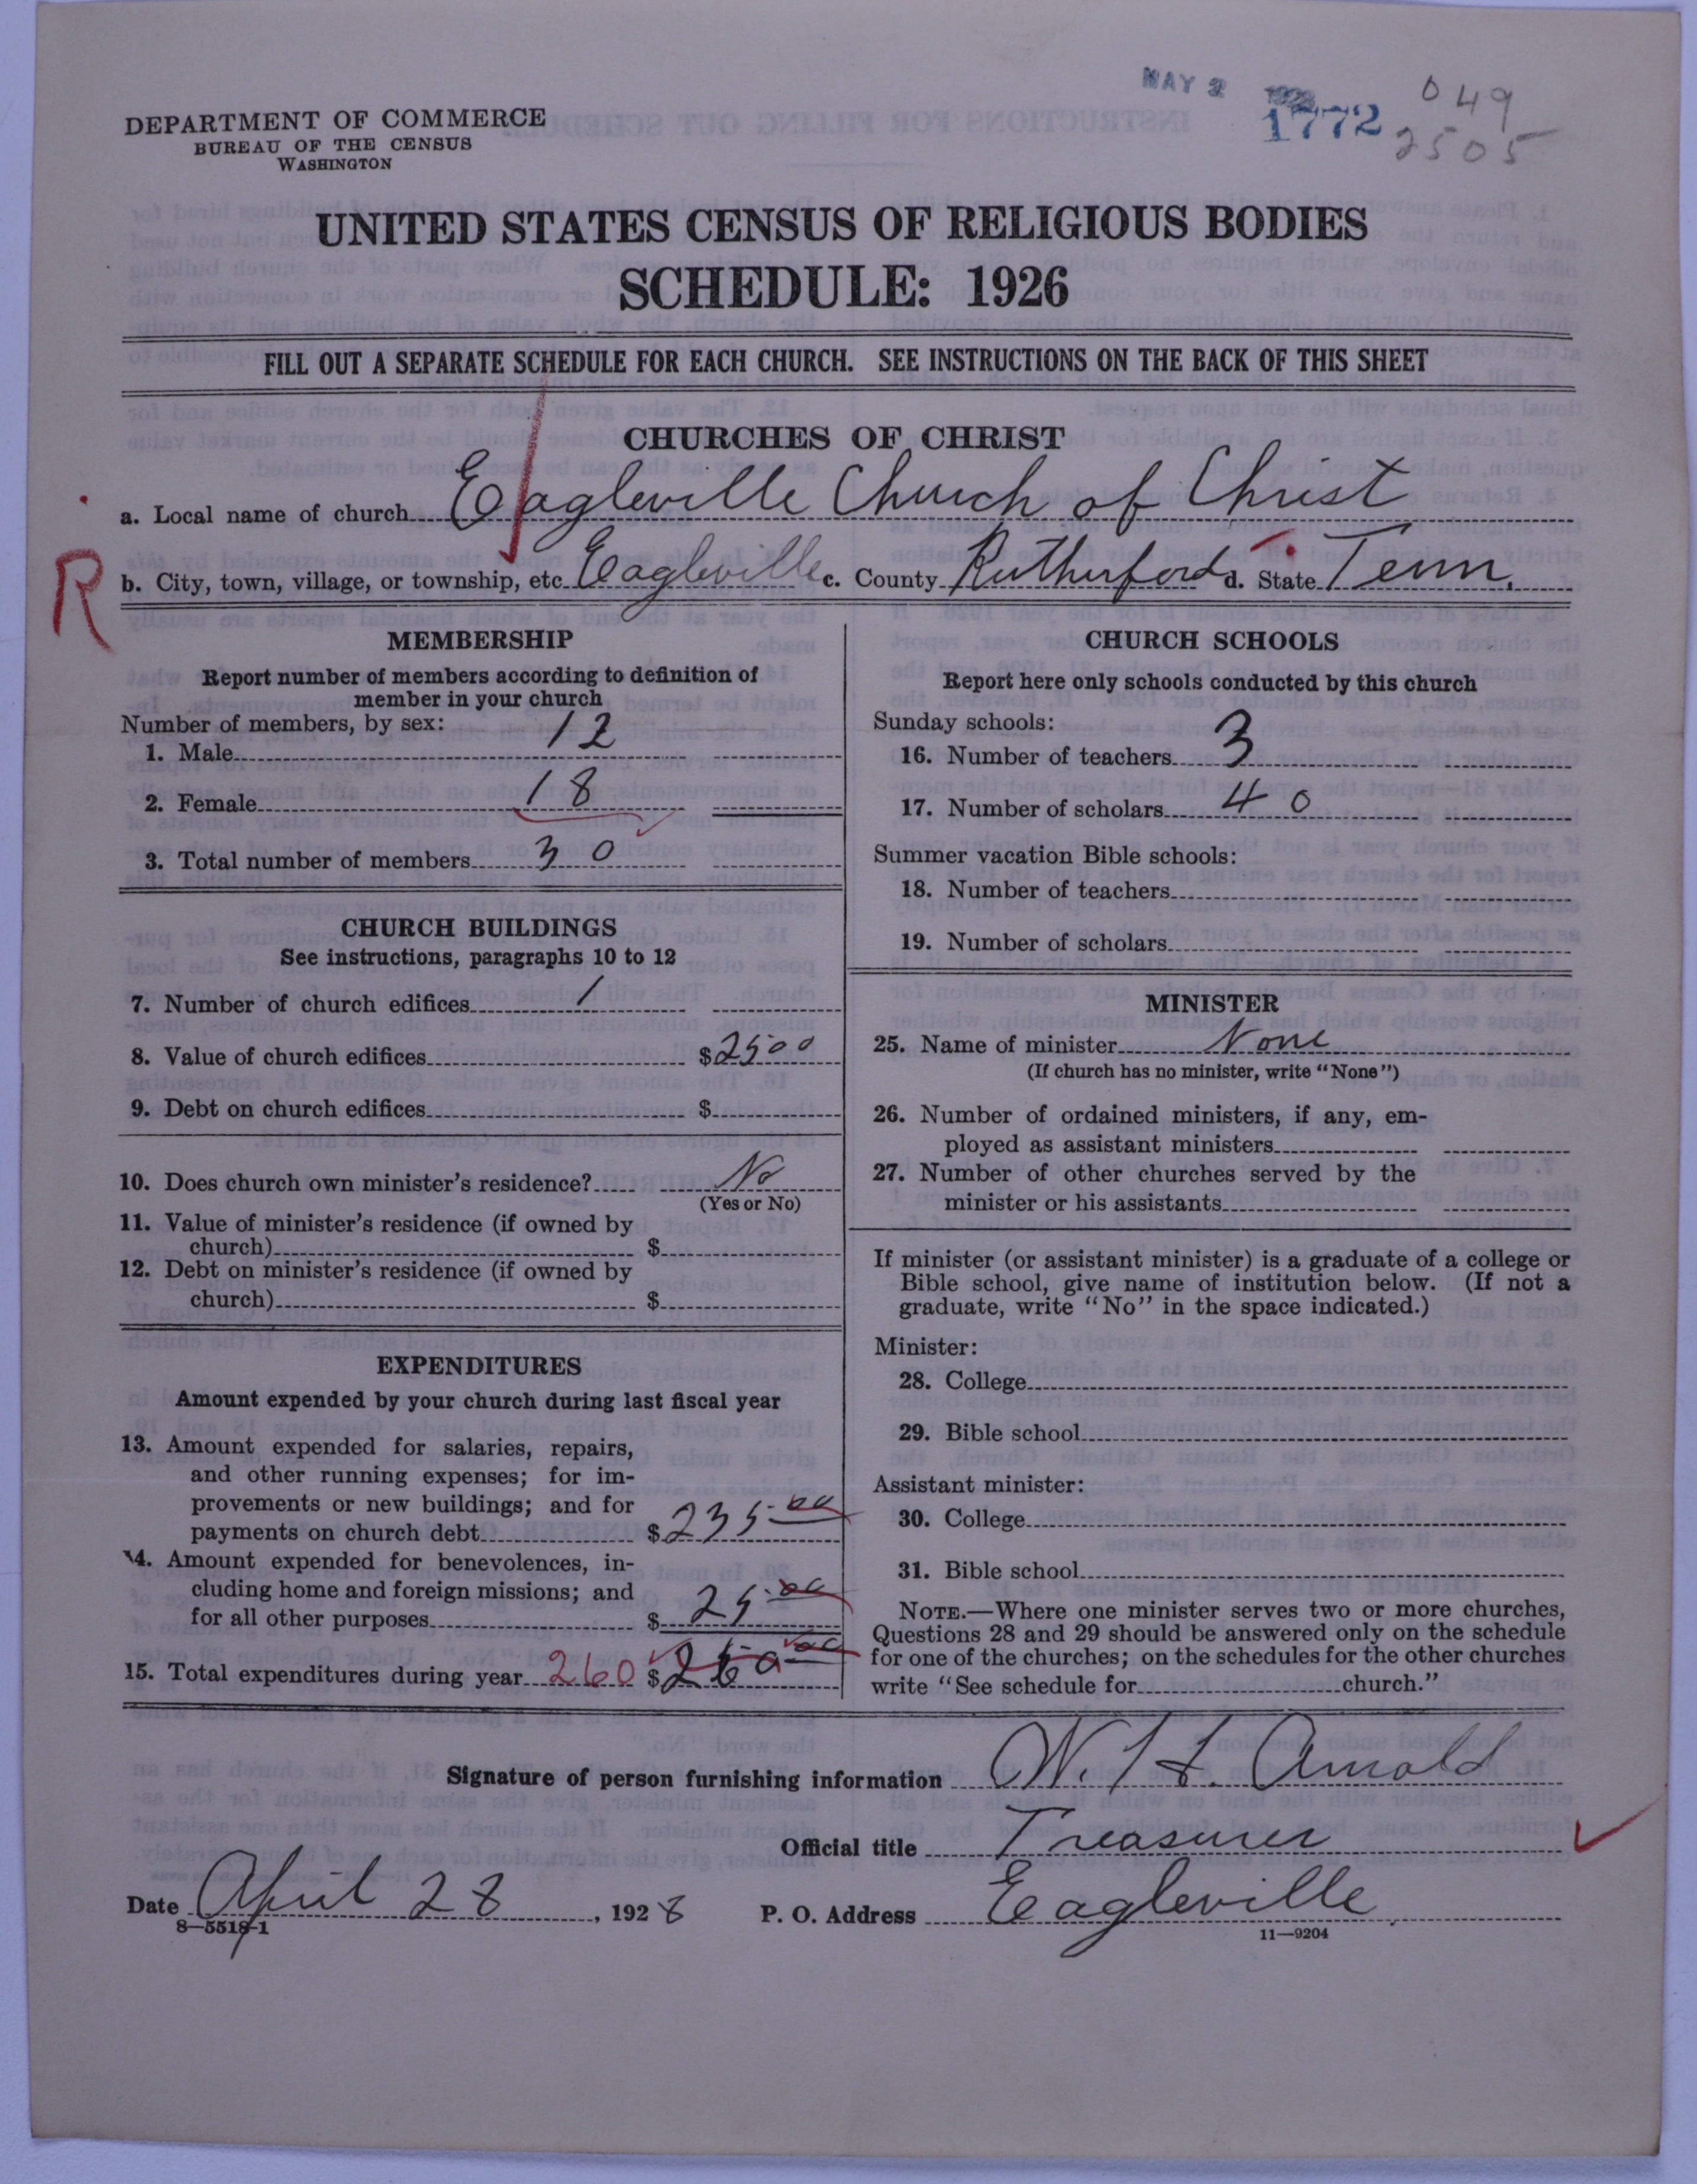 MAY 2 1928
1772
049
2505
DEPARTMENT OF COMMERCE
BUREAU OF THE CENSUS
WASHINGTON
UNITED STATES CENSUS OF RELIGIOUS BODIES
SCHEDULE: 1926
FILL OUT A SEPARATE SCHEDULE FOR EACH CHURCH. SEE INSTRUCTIONS ON THE BACK OF THIS SHEET
CHURCHES OF CHRIST
a. Local name of church Eagleville Church of Christ
R
b. City, town, village, or township, etc. Eagleville c. County Rutherford d. State Tenn.
MEMBERSHIP
Report number of members according to definition of
member in your church
Number of members, by sex:
1. Male 12
2. Female 18
3. Total number of members 30
CHURCH BUILDINGS
See instructions, paragraphs 10 to 12
7. Number of church edifices 1
8. Value of church edifices $2500
9. Debt on church edifices $
10. Does church own minister's residence? No
(Yes or No)
11. Value of minister's residence (if owned by
church) $
12. Debt on minister's residence (if owned by
church) $
EXPENDITURES
Amount expended by your church during last fiscal year
13. Amount expended for salaries, repairs,
and other running expenses; for im-
provements or new buildings; and for
payments on church debt $235.00
14. Amount expended for benevolences, in-
cluding home and foreign missions; and
for all other purposes $25.00
15. Total expenditures during year 260 $260.00
CHURCH SCHOOLS
Report here only schools conducted by this church
Sunday schools:
16. Number of teachers 3
17. Number of scholars 40
Summer vacation Bible schools:
18. Number of teachers
19. Number of scholars
MINISTER
25. Name of minister None
(If church has no minister, write "None")
26. Number of ordained ministers, if any, em-
ployed as assistant ministers
27. Number of other churches served by the
minister or his assistants
If minister (or assistant minister) is a graduate of a college or
Bible school, give name of institution below. (If not a
graduate, write "No" in the space indicated.)
Minister:
28. College
29. Bible school
Assistant minister:
30. College
31. Bible school
NOTE.—Where one minister serves two or more churches,
Questions 28 and 29 should be answered only on the schedule
for one of the churches; on the schedules for the other churches
write "See schedule for church."
Signature of person furnishing information W. H. Arnold
Official title Treasurer
Date April 28, 1928 P. O. Address Eagleville
8—5518-1
11—9204